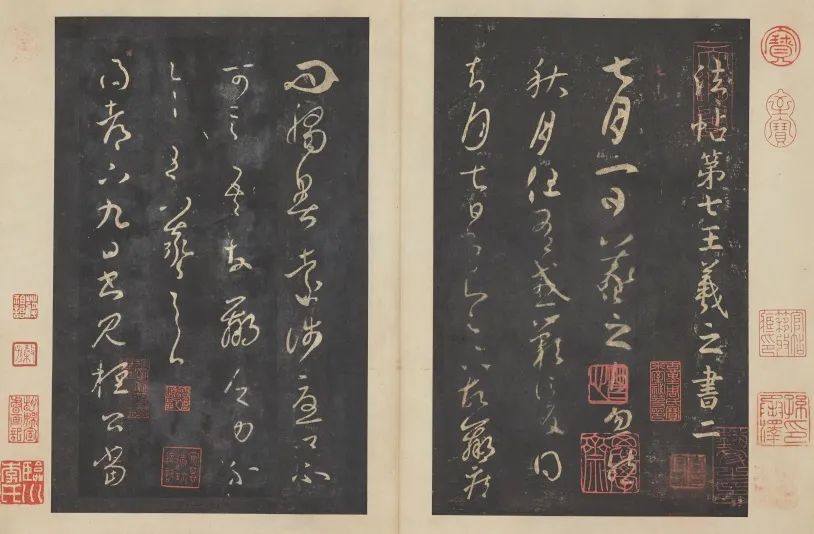 法帖第七王羲之書二
七月一日羲之白忽然
秋月但有感歎信反得
去月七日書知足下故羸疾
問觸暑遠涉憂卿不
可言吾故羸乏力不
一一王羲之
得都下九日書見桓公當
寶